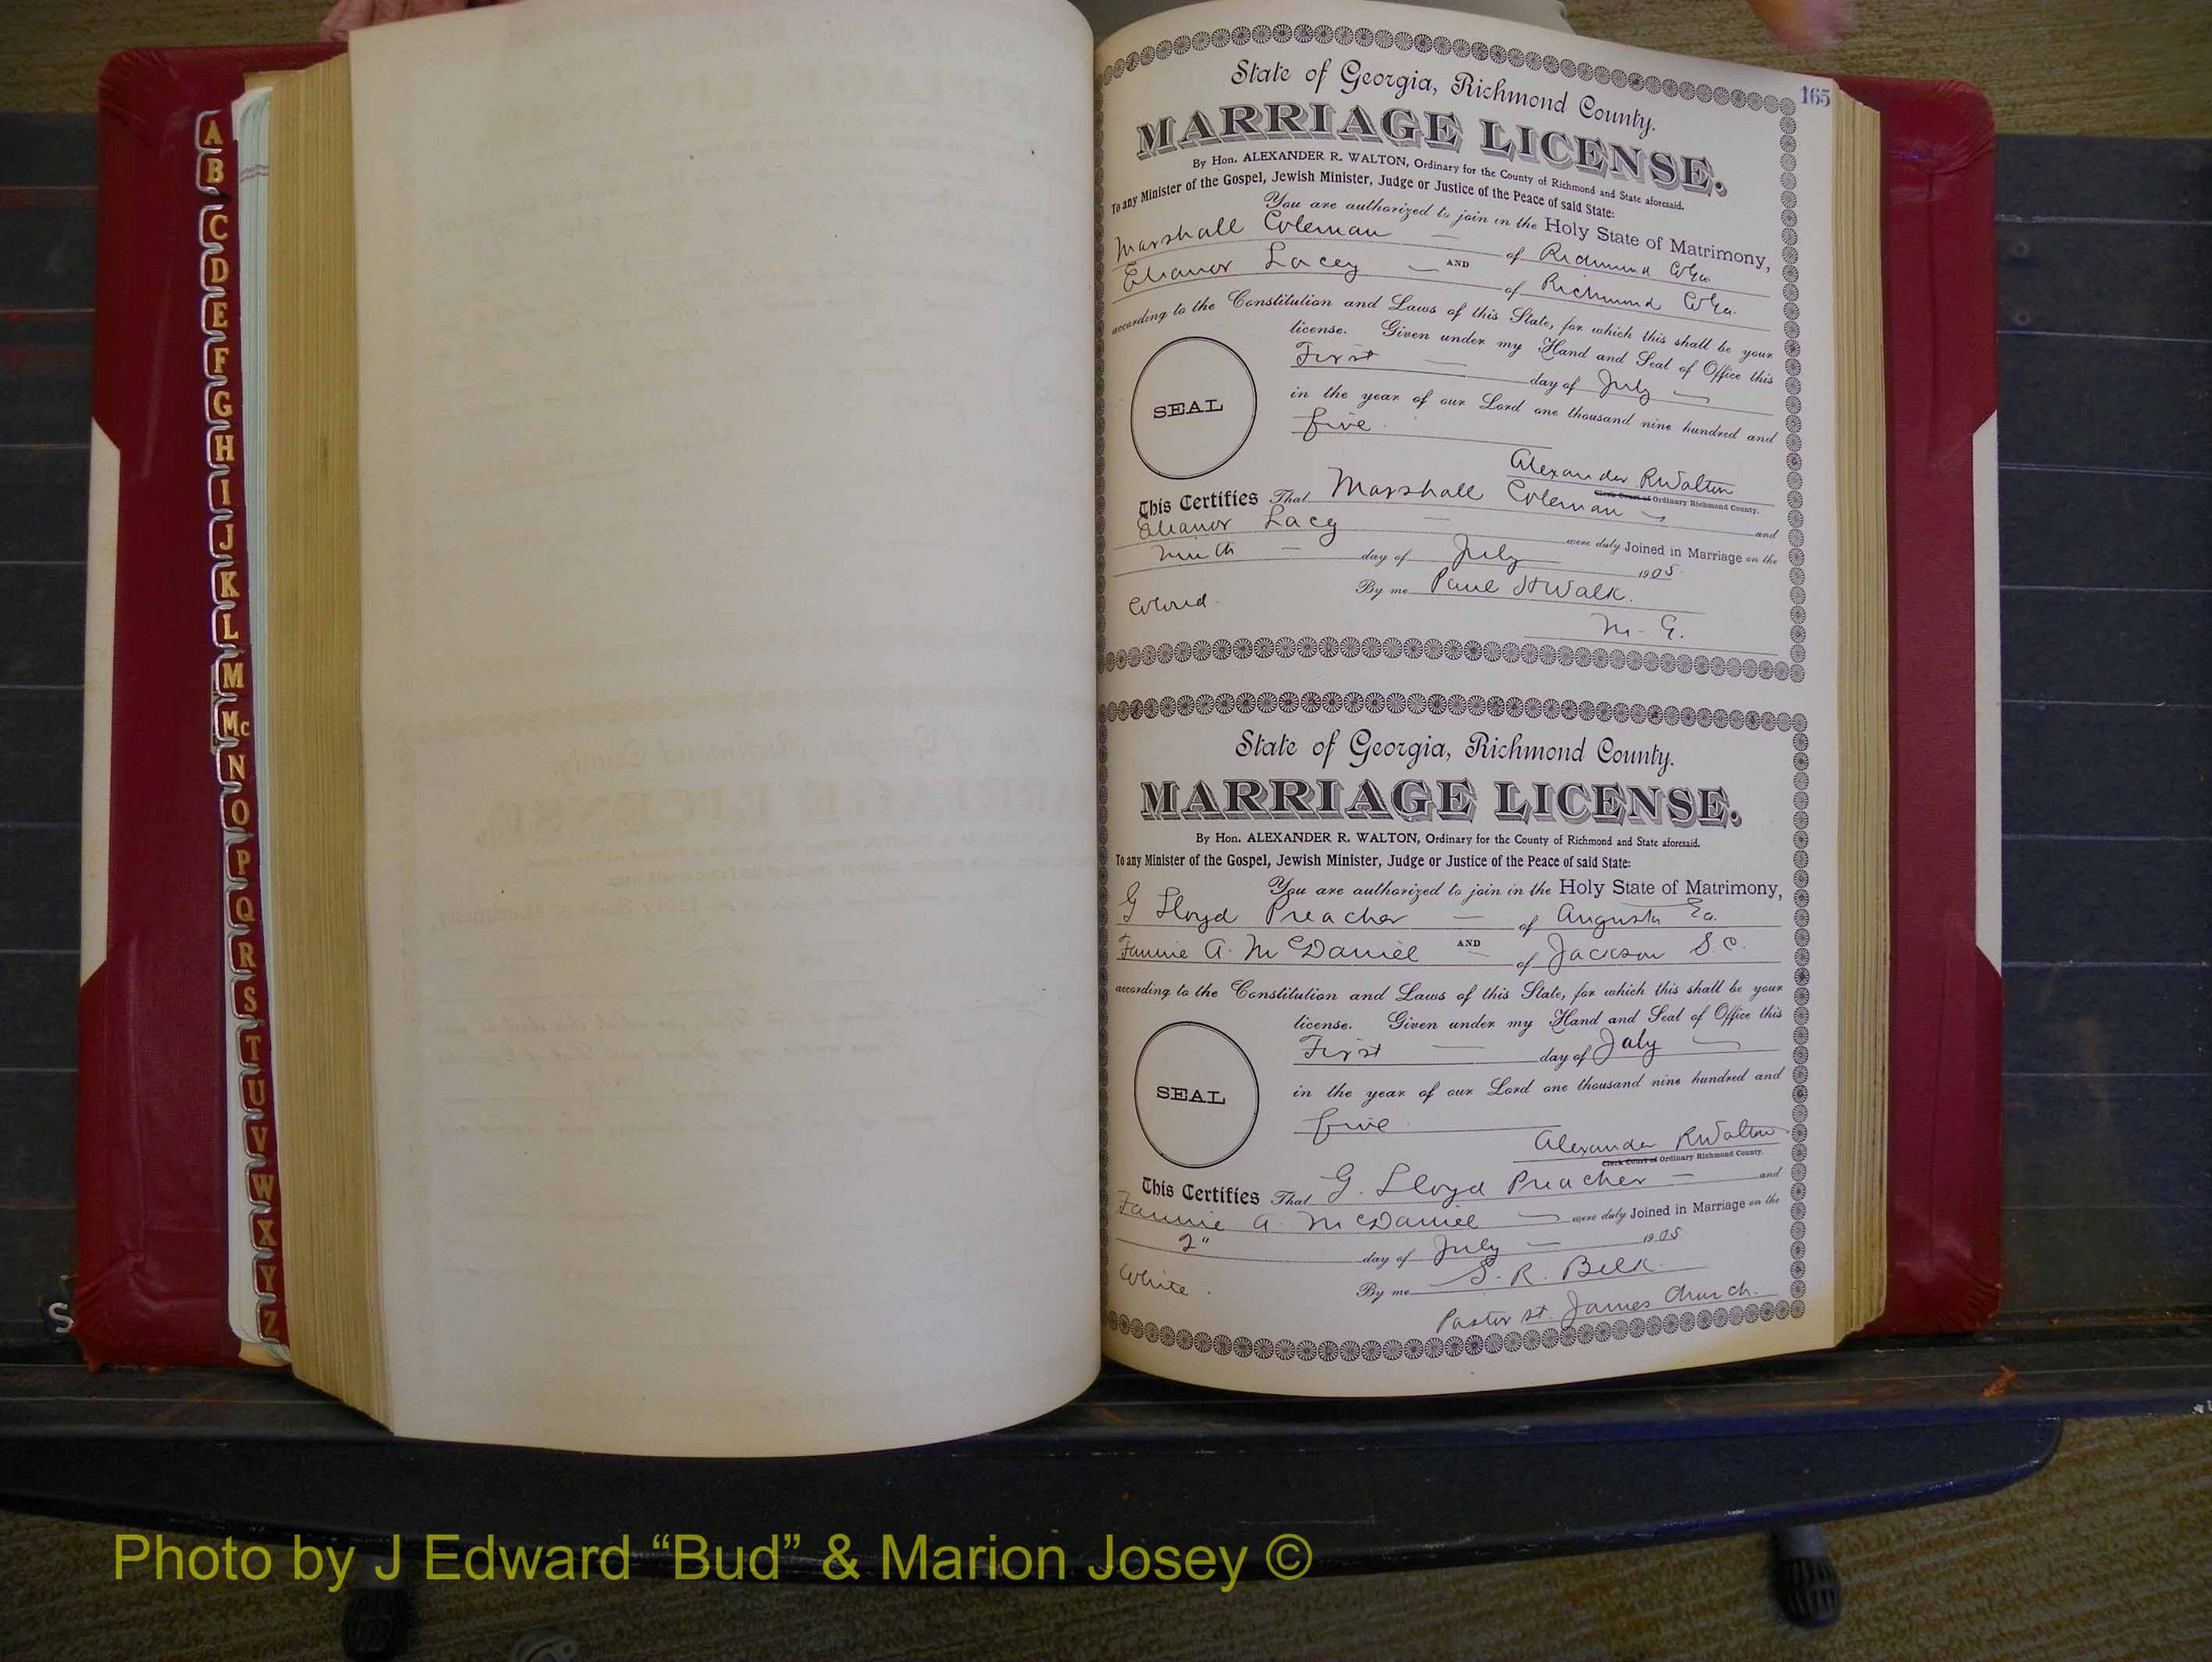 A
B
C
D
E
F
G
H
I
J
K
L
M
Mc
N
O
P
Q
R
S
T
U
V
W
X
Y
Z
S
165
State of Georgia, Richmond County.
MARRIAGE LICENSE.
By Hon. ALEXANDER R. WALTON, Ordinary for the County of Richmond and State aforesaid.
To any Minister of the Gospel, Jewish Minister, Judge or Justice of the Peace of said State:
You are authorized to join in the Holy State of Matrimony,
Marshall Coleman — of Richmond Co Ga
AND
Eleanor Lacey — of Richmond Co Ga.
according to the Constitution and Laws of this State, for which this shall be your
license. Given under my Hand and Seal of Office this
First — day of July —
in the year of our Lord one thousand nine hundred and
five.
SEAL
Alexander R Walton
Clerk Court of Ordinary Richmond County.
This Certifies That Marshall Coleman — and
Eleanor Lacy — were duly Joined in Marriage on the
ninth — day of July 1905.
By me Paul H Walk.
Colored.
M. G.
State of Georgia, Richmond County.
MARRIAGE LICENSE.
By Hon. ALEXANDER R. WALTON, Ordinary for the County of Richmond and State aforesaid.
To any Minister of the Gospel, Jewish Minister, Judge or Justice of the Peace of said State:
You are authorized to join in the Holy State of Matrimony,
G Lloyd Preacher — of Augusta Ga.
AND
Fannie A. McDaniel — of Jackson S.C.
according to the Constitution and Laws of this State, for which this shall be your
license. Given under my Hand and Seal of Office this
First — day of July —
in the year of our Lord one thousand nine hundred and
five.
SEAL
Alexander R Walton
Clerk Court of Ordinary Richmond County.
This Certifies That G. Lloyd Preacher — and
Fannie A. McDaniel — were duly Joined in Marriage on the
2" day of July — 1905
By me S. R. Belk.
White.
Pastor St. James Church.
Photo by J Edward “Bud” & Marion Josey ©